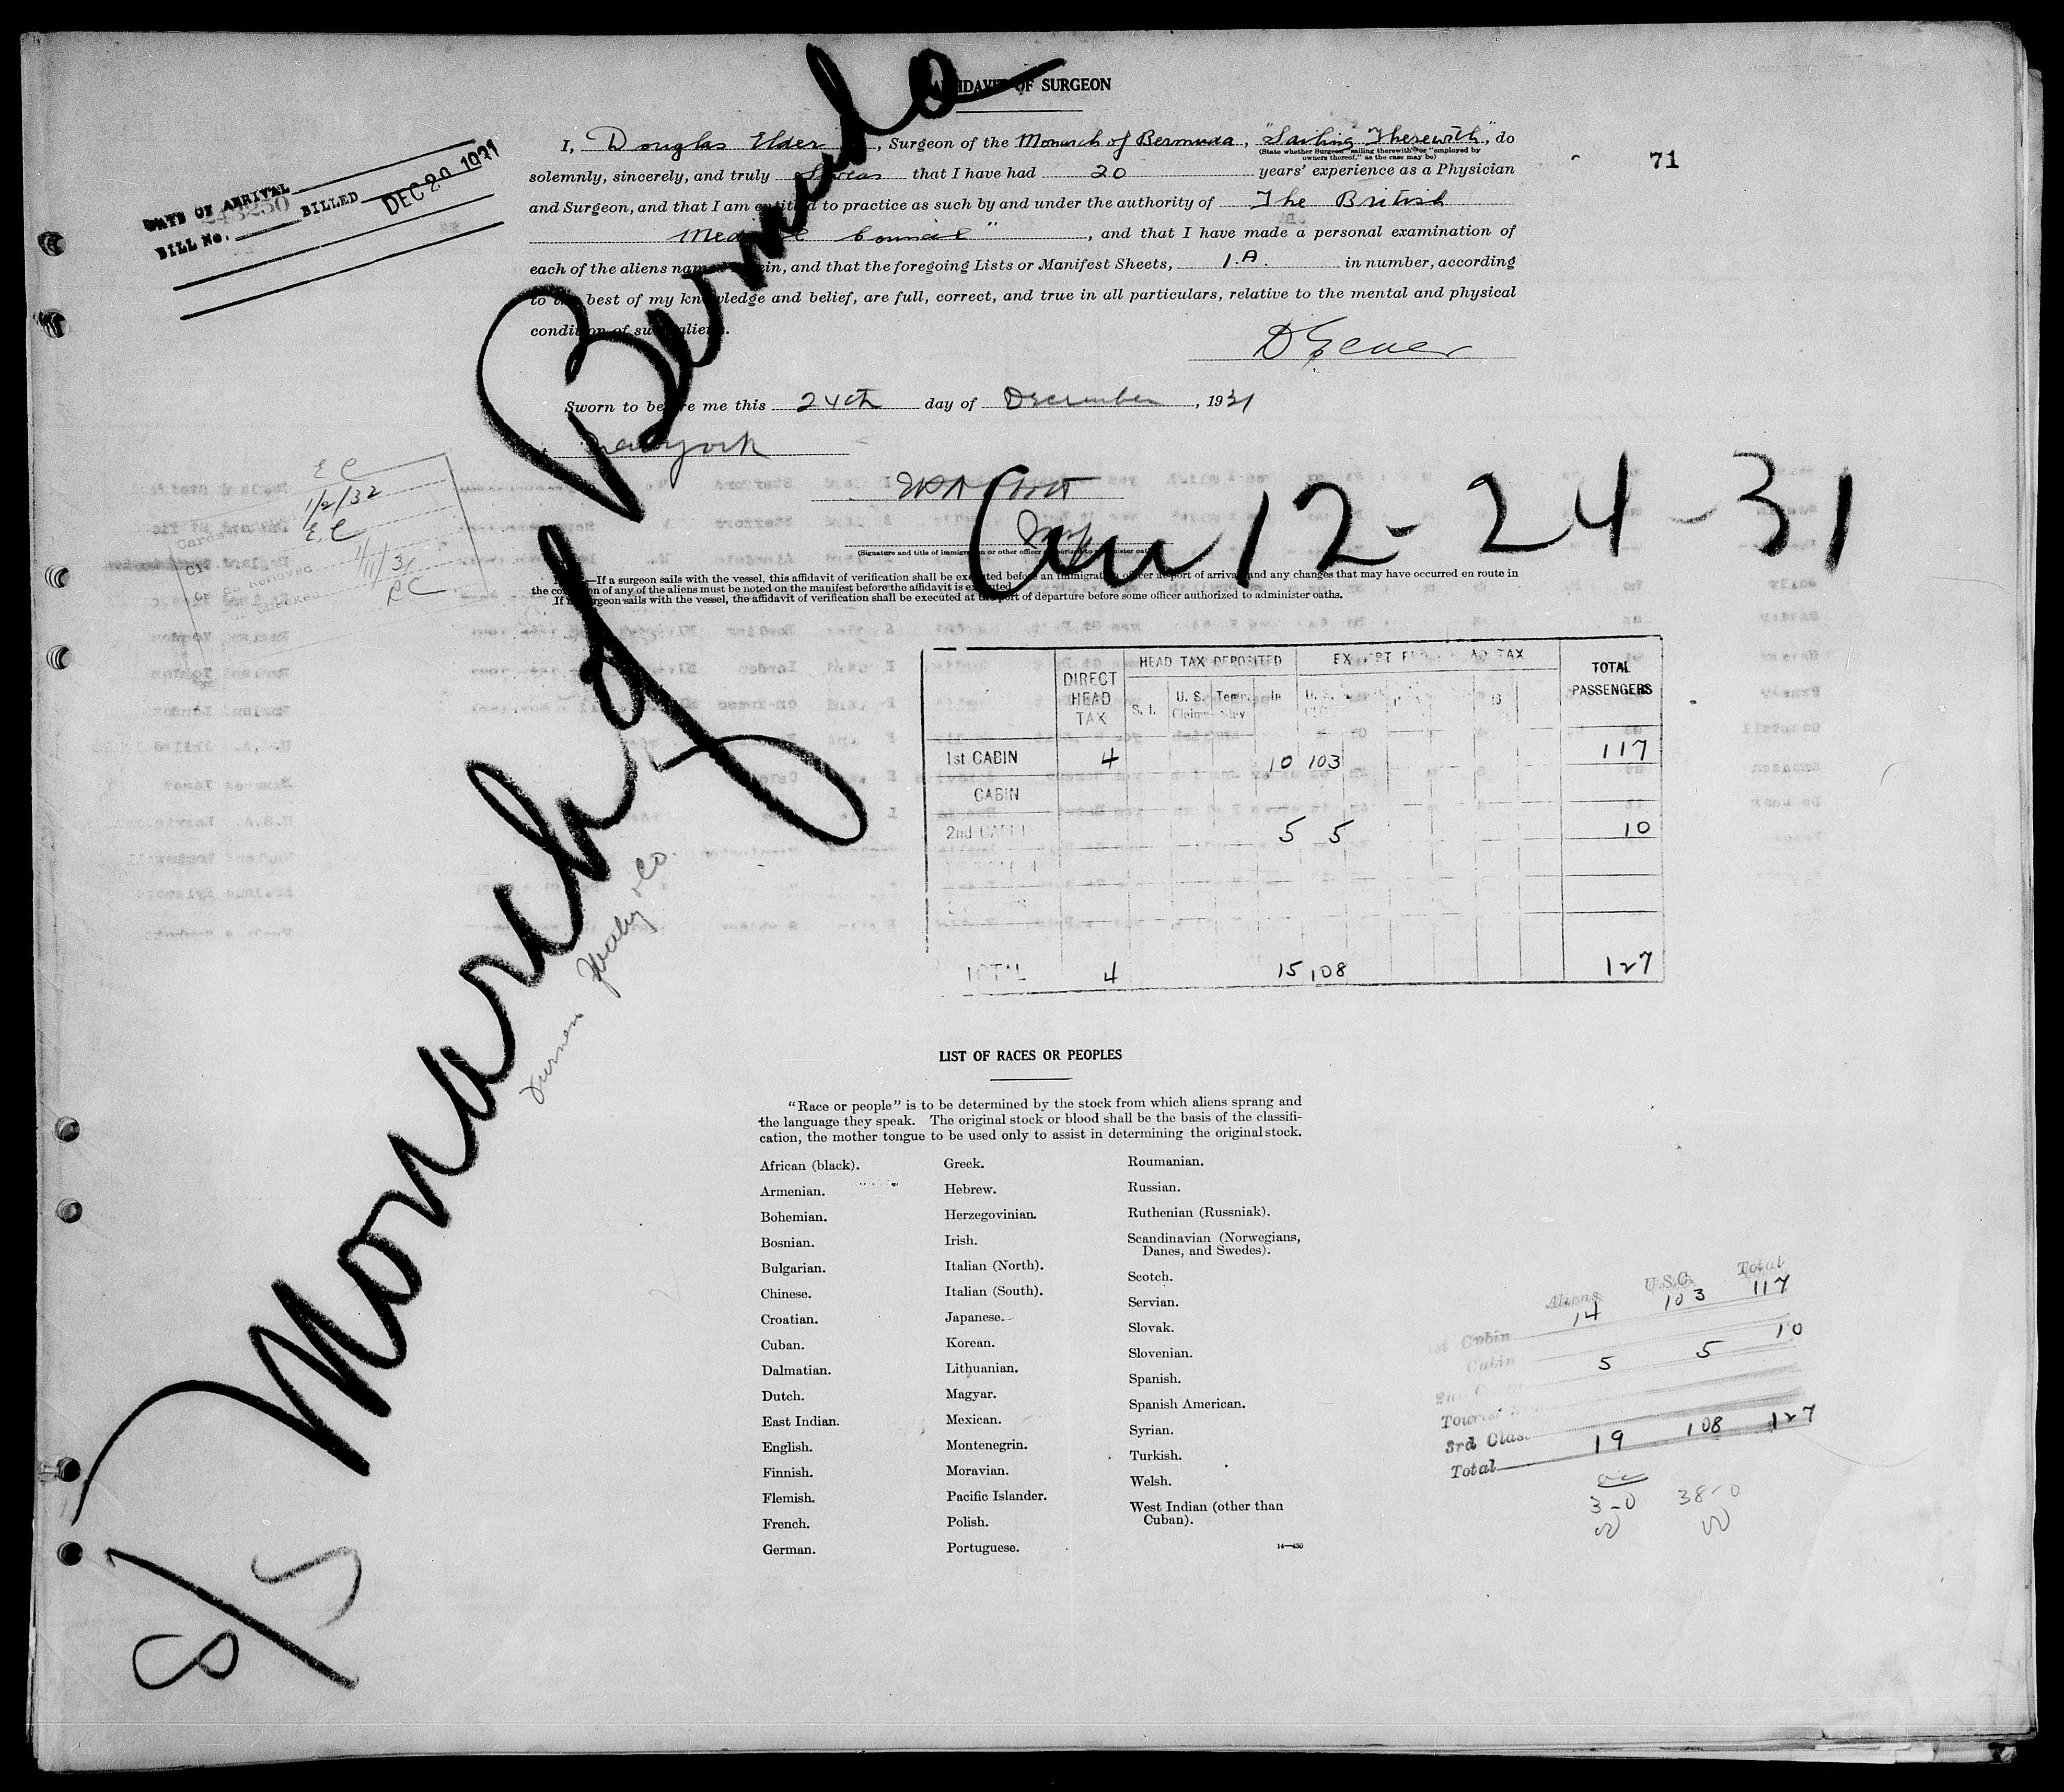 AFFIDAVIT OF SURGEON
I, Douglas Elder, Surgeon of the Monarch of Bermuda, "Sailing Therewith", do
(State whether Surgeon "sailing therewith" or "employed by
owners thereof," as the case may be)
71
solemnly, sincerely, and truly swear that I have had 20 years' experience as a Physician
and Surgeon, and that I am entitled to practice as such by and under the authority of The British
Medical Council", and that I have made a personal examination of
each of the aliens named herein, and that the foregoing Lists or Manifest Sheets, 1.A. in number, according
to the best of my knowledge and belief, are full, correct, and true in all particulars, relative to the mental and physical
condition of such aliens.
DATE OF ARRIVAL
BILL No. 243250 BILLED DEC 29 1931
Sworn to before me this 24th day of December, 1931
at New York
(Signature and title of immigration or other officer authorized to administer oaths)
NOTE.—If a surgeon sails with the vessel, this affidavit of verification shall be executed before an immigration officer at port of arrival and any changes that may have occurred en route in
the condition of any of the aliens must be noted on the manifest before the affidavit is executed.
If no surgeon sails with the vessel, the affidavit of verification shall be executed at the port of departure before some officer authorized to administer oaths.
E C
1/2/32
E.C
Cards
1/11/31
RC
S/S Monarch of Bermuda
Furness Withy & Co.
Arr 12-24-31
DIRECT HEAD TAX HEAD TAX DEPOSITED EXEMPT FROM HEAD TAX TOTAL PASSENGERS
S. I. U. S. Claims Temp. Stay In
1st CABIN 4 10 103 117
CABIN
2nd CABIN 5 5 10
TOTAL 4 15 108 127
LIST OF RACES OR PEOPLES
"Race or people" is to be determined by the stock from which aliens sprang and
the language they speak. The original stock or blood shall be the basis of the classifi-
cation, the mother tongue to be used only to assist in determining the original stock.
African (black).
Armenian.
Bohemian.
Bosnian.
Bulgarian.
Chinese.
Croatian.
Cuban.
Dalmatian.
Dutch.
East Indian.
English.
Finnish.
Flemish.
French.
German.
Greek.
Hebrew.
Herzegovinian.
Irish.
Italian (North).
Italian (South).
Japanese.
Korean.
Lithuanian.
Magyar.
Mexican.
Montenegrin.
Moravian.
Pacific Islander.
Polish.
Portuguese.
Roumanian.
Russian.
Ruthenian (Russniak).
Scandinavian (Norwegians,
Danes, and Swedes).
Scotch.
Servian.
Slovak.
Slovenian.
Spanish.
Spanish American.
Syrian.
Turkish.
Welsh.
West Indian (other than
Cuban).
14—430
Aliens U.S.C. Total
1st Cabin 14 103 117
Cabin
2nd 5 5 10
Tourist
3rd Class
Total 19 108 127
3-0 38-0